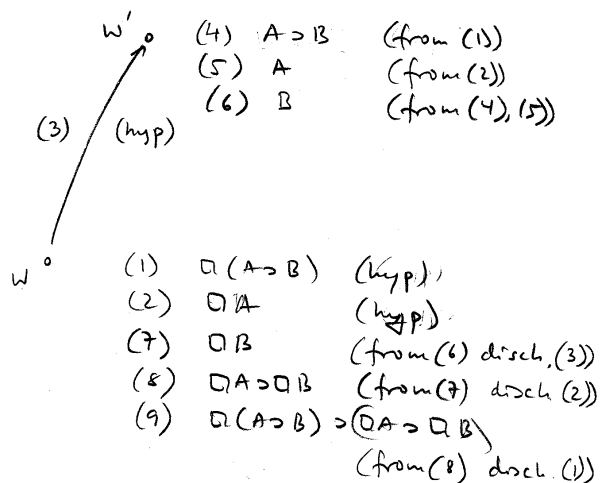 w' (4) A ⊃ B (from (1))
(5) A (from (2))
(6) B (from (4), (5))
(3) (hyp)
w (1) □(A ⊃ B) (hyp)
(2) □A (hyp)
(7) □B (from (6) disch. (3))
(8) □A ⊃ □B (from (7) disch (2))
(9) □(A ⊃ B) ⊃ (□A ⊃ □B)
(from (8) disch. (1))